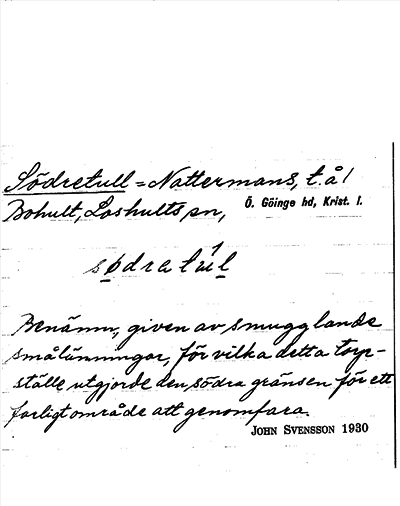 Södretull = Nattermans, t. å /
Bohult, Loshults sn, Ö. Göinge hd, Krist. l.
södra tul
Benämn., given av smugglande
smålänningar, för vilka detta torp-
ställe utgjorde den södra gränsen för ett
farligt område att genomfara.
JOHN SVENSSON 1930